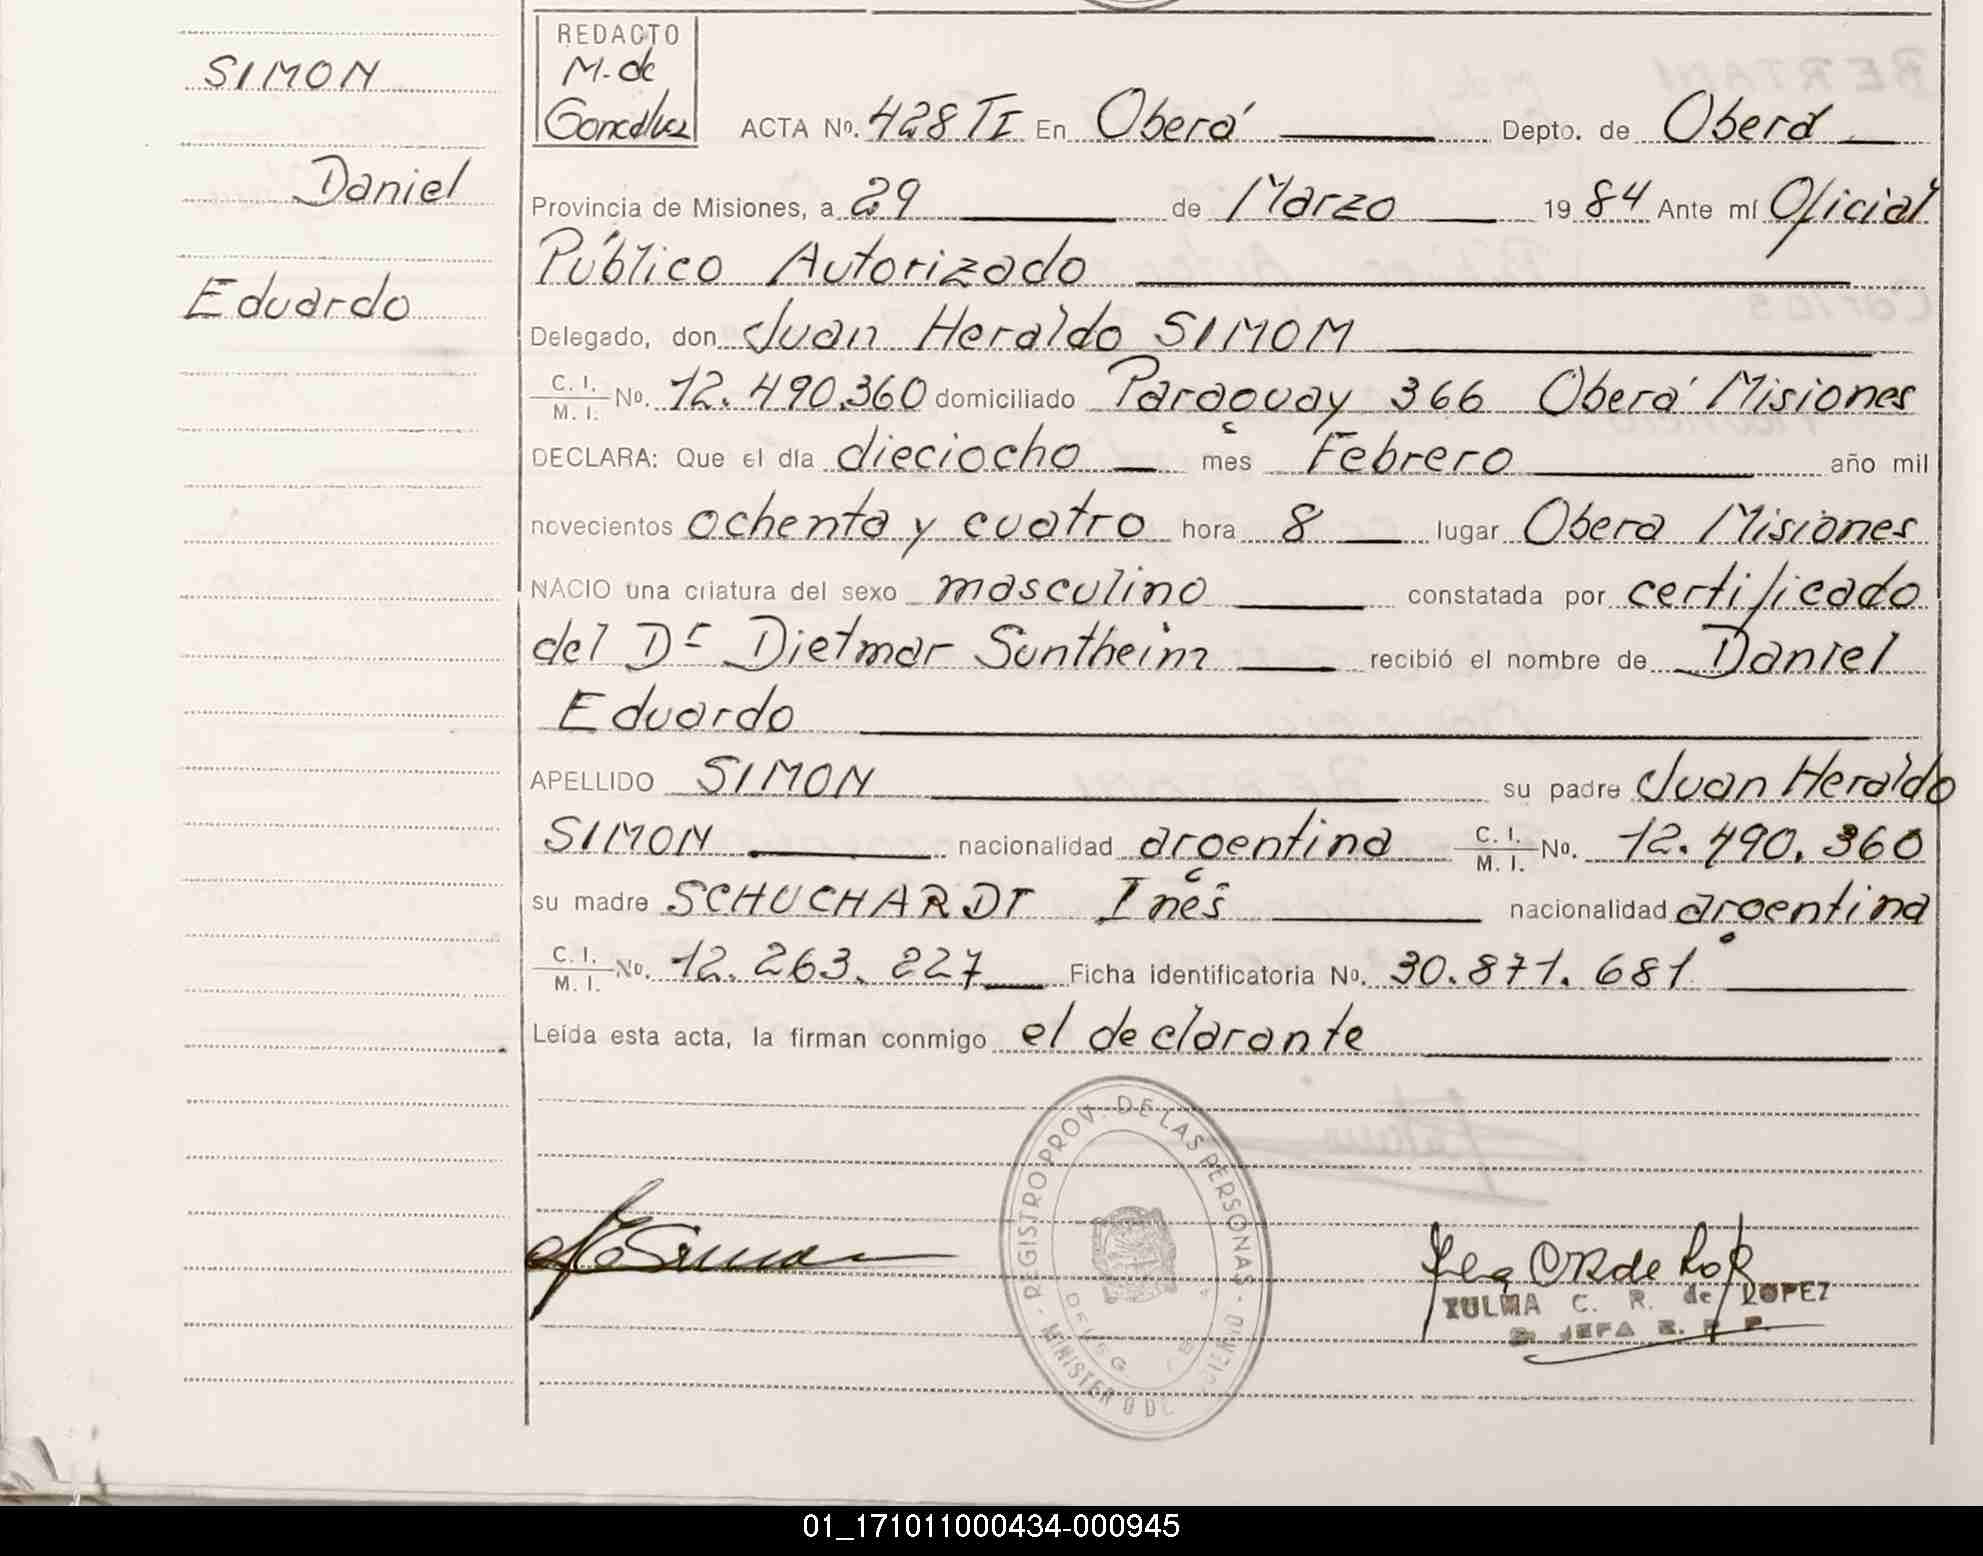 SIMON
Daniel
Eduardo
REDACTO
M. de
González
ACTA Nº. 428 TI En Oberá Depto. de Oberá
Provincia de Misiones, a 29 de Marzo 19 84 Ante mí Oficial
Público Autorizado
Delegado, don Juan Heraldo SIMON
C. I. / M. I. Nº. 12.490.360 domiciliado Paraguay 366 Oberá Misiones
DECLARA: Que el día dieciocho mes Febrero año mil
novecientos ochenta y cuatro hora 8 lugar Obera Misiones
NACIO una criatura del sexo masculino constatada por certificado
del Dr Dietmar Suntheim recibió el nombre de Daniel
Eduardo
APELLIDO SIMON su padre Juan Heraldo
SIMON nacionalidad argentina C. I. / M. I. Nº. 12.490.360
su madre SCHUCHARDT Inés nacionalidad argentina
C. I. / M. I. Nº. 12.263.227 Ficha identificatoria Nº. 30.871.681
Leída esta acta, la firman conmigo el declarante
REGISTRO PROV. DE LAS PERSONAS
ZULMA C. R. de LOPEZ
01_171011000434-000945